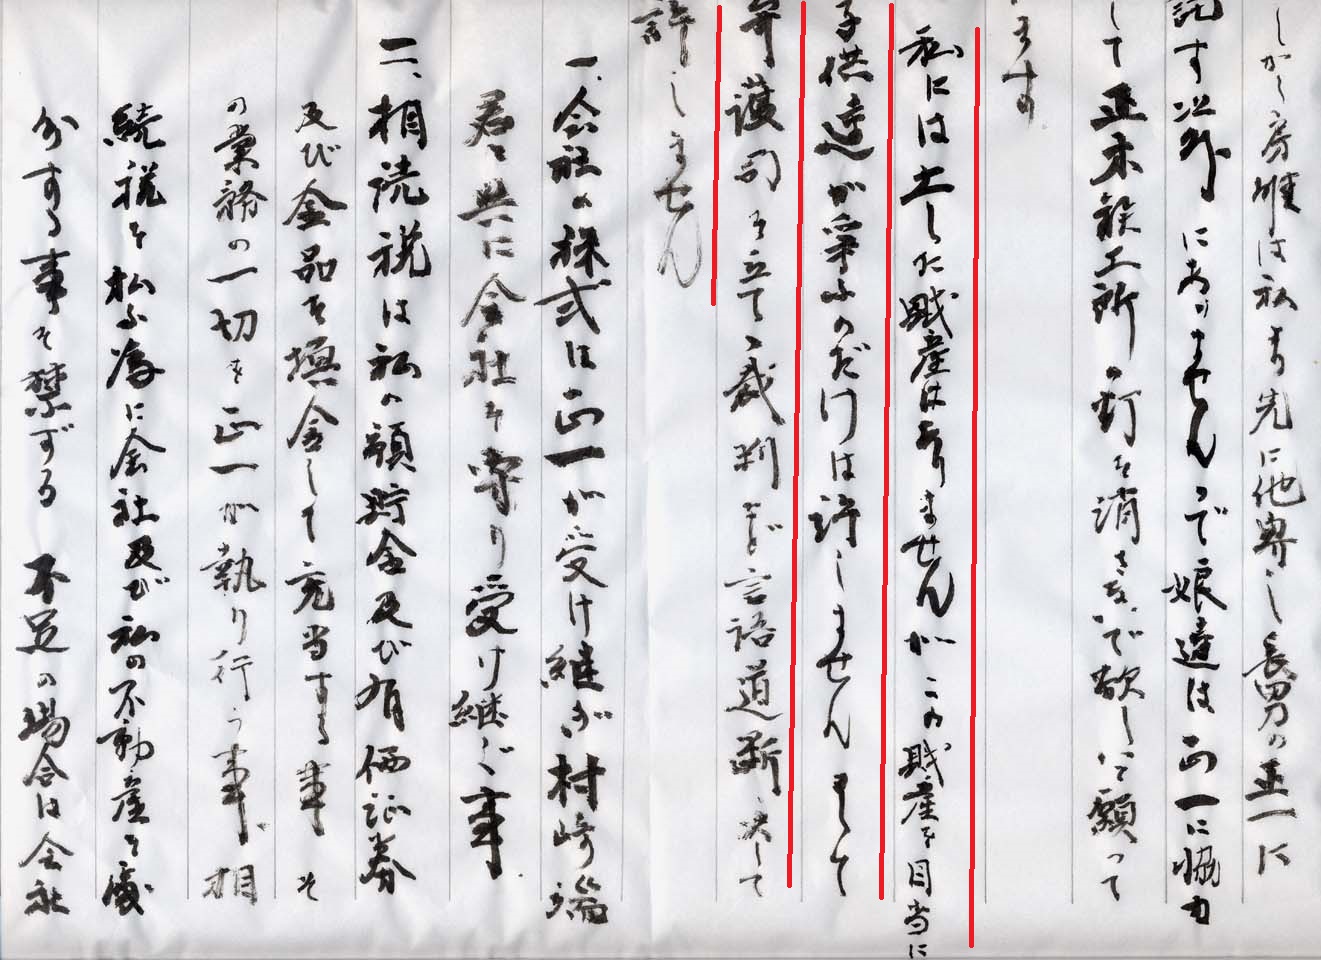 しかし房雄は私より先に他界し長男の正一に
託す以外にありませんので娘達は正一に協力
して正木鉄工所の灯を消さないで欲しいと願って
ます
私には大した財産はありませんがこの財産を目当に
子供達が争ふのだけは許しませんまして
弁護司を立てゝ裁判など言語道断決して
許しません
一、会社の株式は正一が受け継ぎ村崎瑞
君と共に会社を守り受け継ぐ事
二、相読税は私の預貯金及び有価証券
及び金品を換金して充当する事 そ
の業務の一切を正一が執り行う事 相
続税を払ふ為に会社及び私の不動産を処
分する事を禁ずる 不足の場合は会社